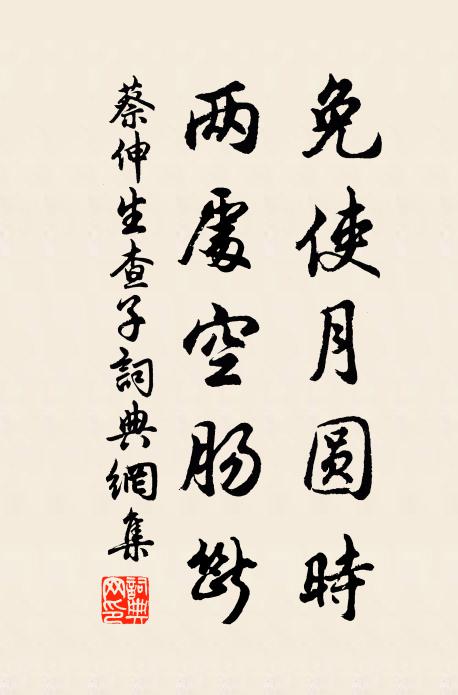 免使月圆時
两處空肠斷
蔡伸生查子詞典網集
詞典网印